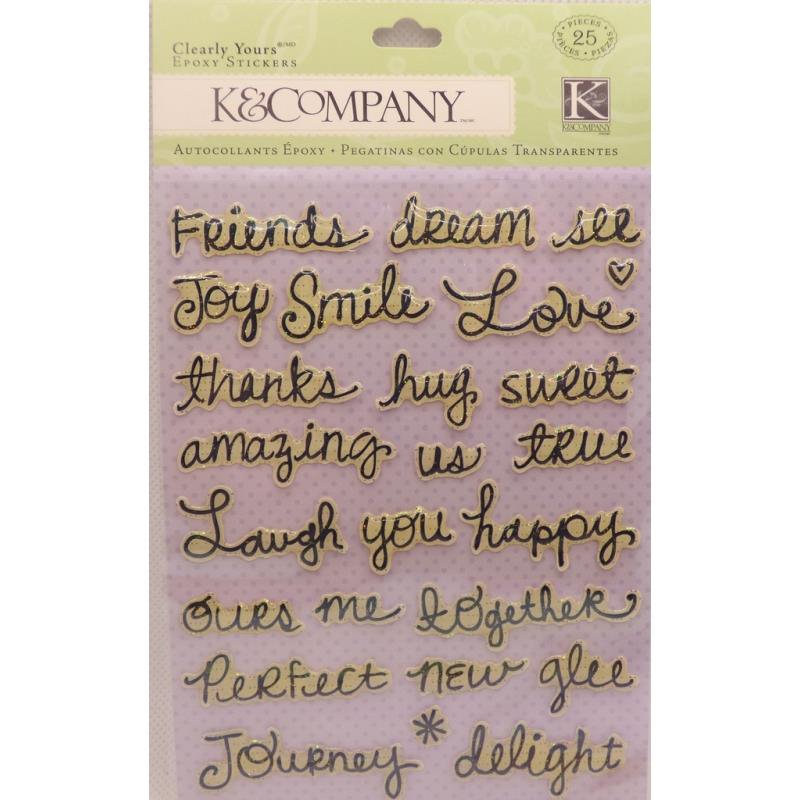 Clearly Yours®/MD
Epoxy Stickers
• PIECES •
25
PIÈCES • PIEZAS
K&COMPANY
K
K&COMPANY
Autocollants Époxy • Pegatinas con Cúpulas Transparentes
Friends dream see
Joy Smile Love
thanks hug sweet
amazing us true
Laugh you happy
ours me together
Perfect new glee
Journey * delight